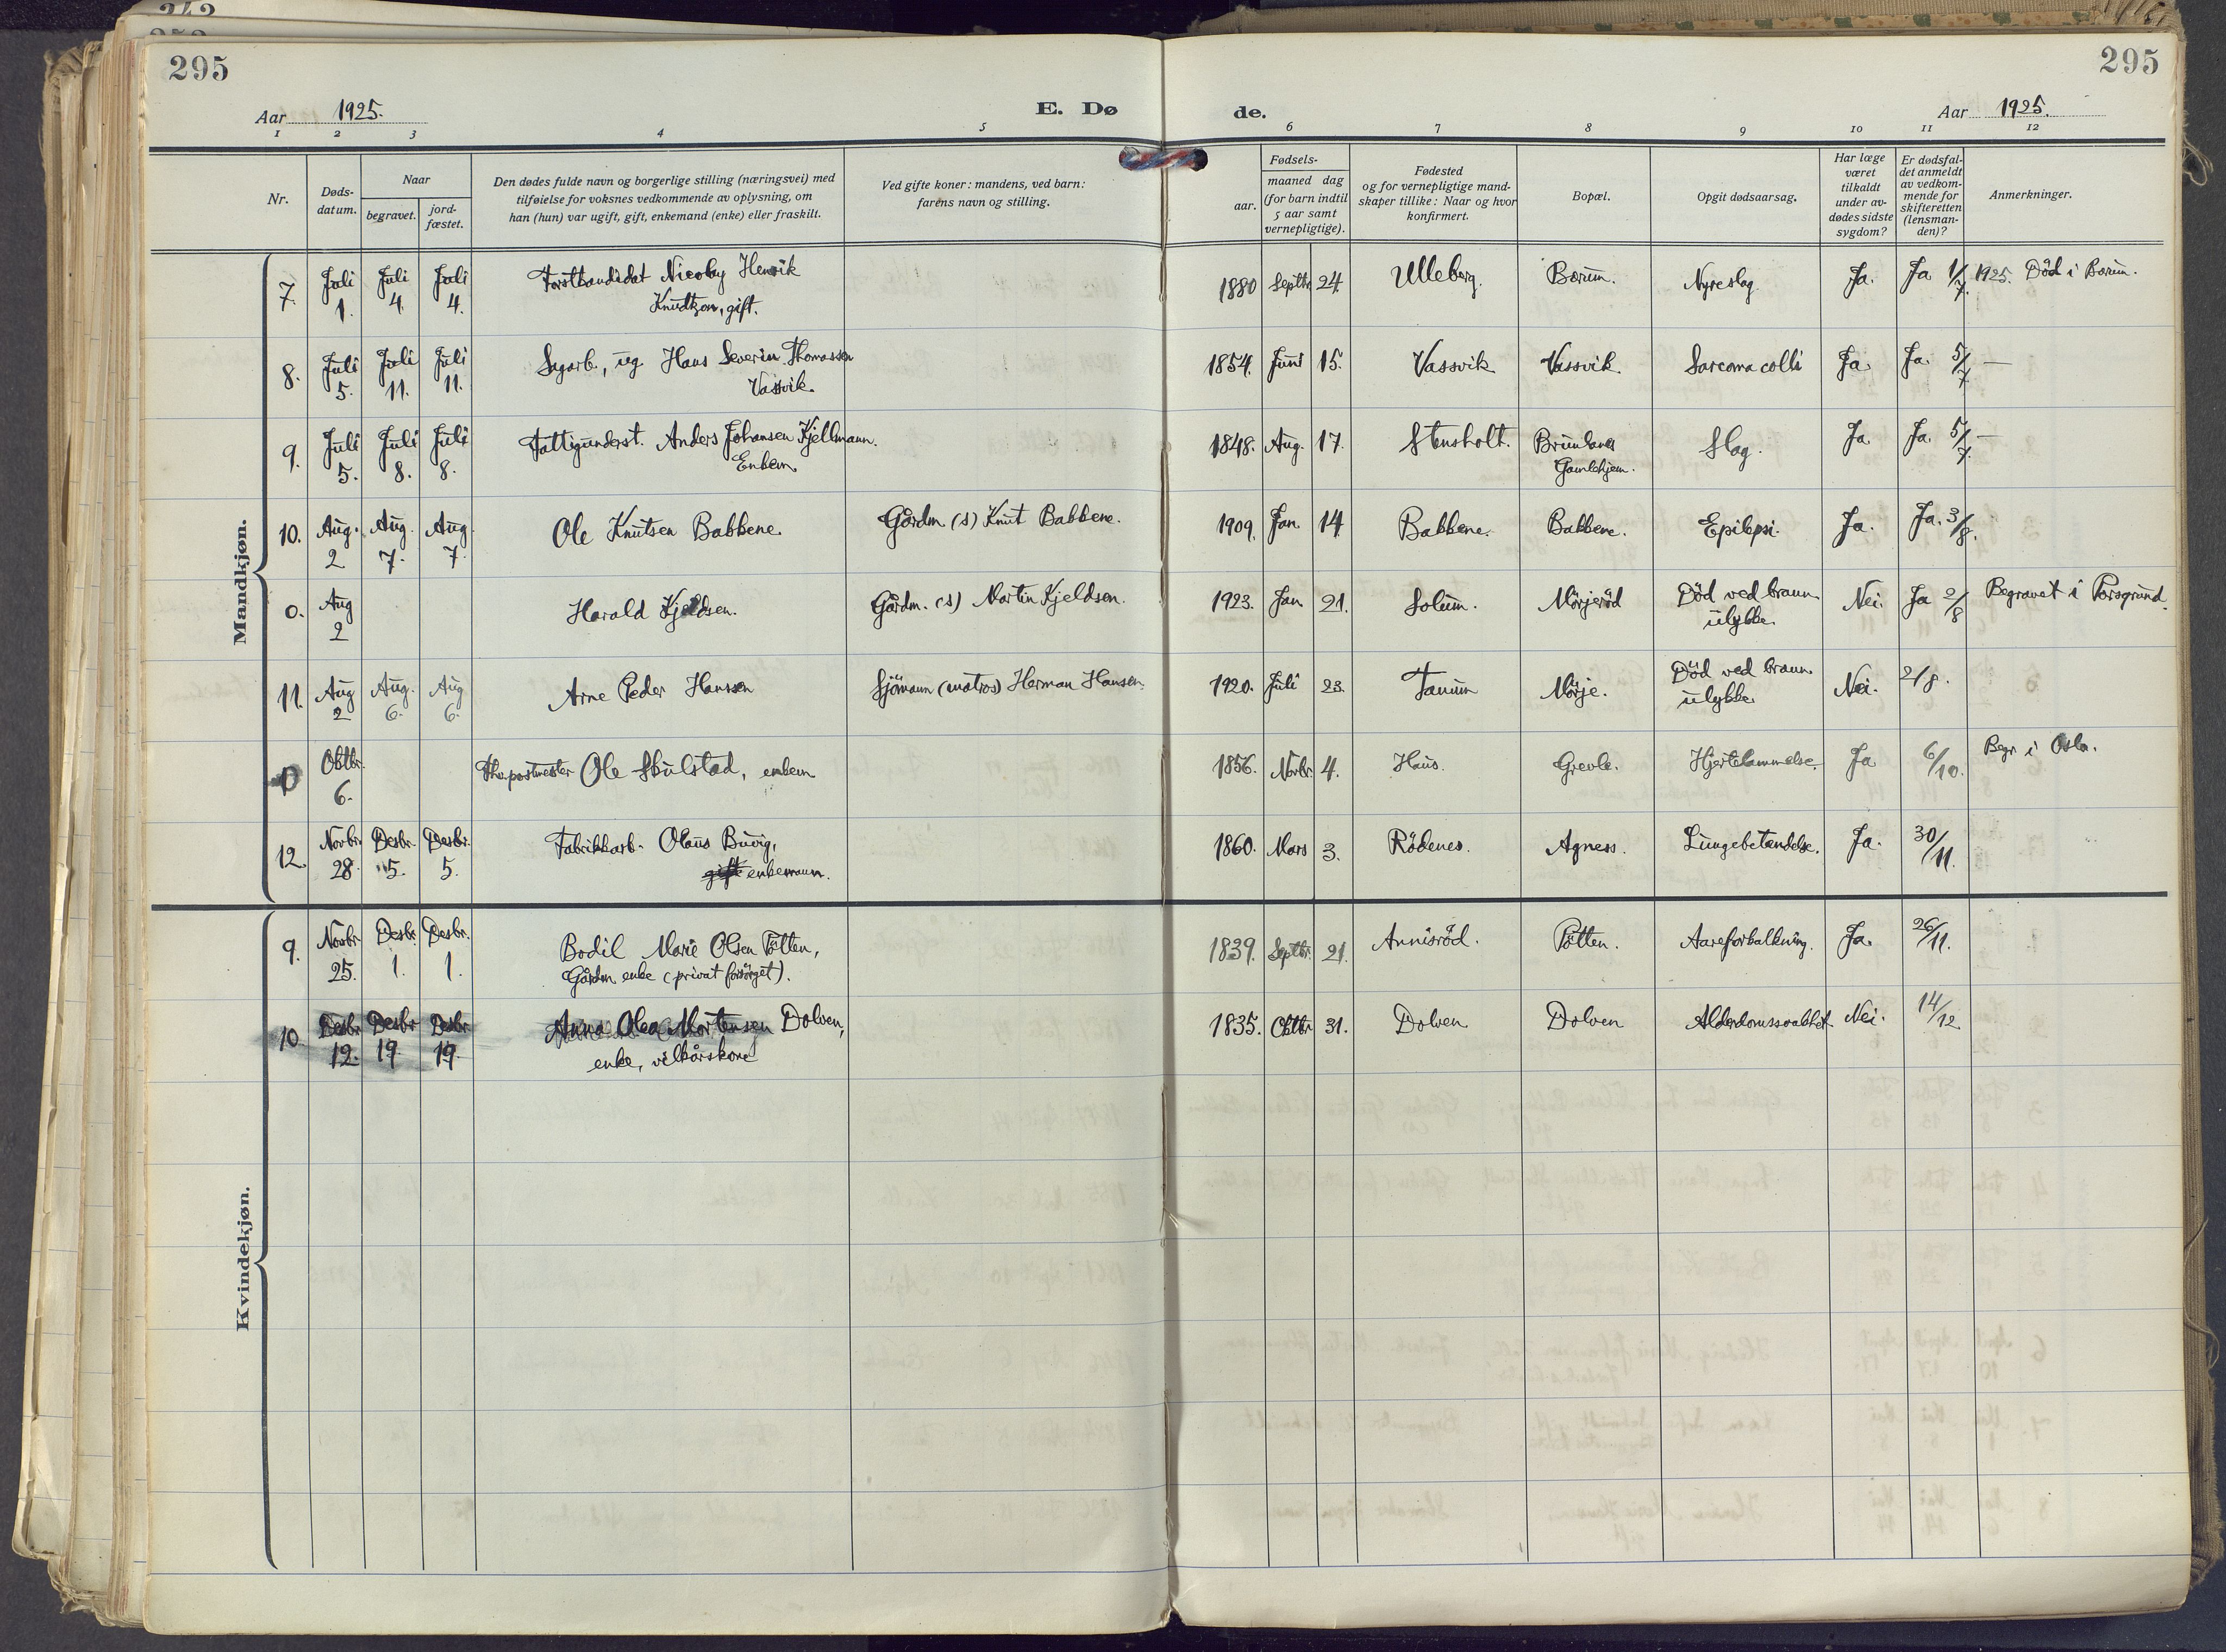 242
252
295
295
Aar 1925.
E. Dø
de.
Aar 1925.
1 2 3 4 5 6 7 8 9 10 11 12
Nr.
Døds-
datum.
Naar
begravet.
jord-
fæstet.
Den dødes fulde navn og borgerlige stilling (næringsvei) med
tilføielse for voksnes vedkommende av oplysning, om
han (hun) var ugift, gift, enkemand (enke) eller fraskilt.
Ved gifte koner: mandens, ved barn:
farens navn og stilling.
Fødsels-
aar.
maaned dag
(for barn indtil
5 aar samt
vernepligtige).
Fødested
og for vernepligtige mand-
skaper tillike: Naar og hvor
konfirmert.
Bopæl.
Opgit dødsaarsag.
Har læge
været
tilkaldt
under av-
dødes sidste
sygdom?
Er dødsfal-
det anmeldt
av vedkom-
mende for
skifteretten
(lensman-
den)?
Anmerkninger.
Mandkjøn.
7. Juli Juli Juli Forstkandidat Nicolay Henrik 1880 Septbr. 24. Ulleberg. Bærum. Nyreslag. Ja. Ja 1/7. 1925. Död i Bærum.
1. 4. 4. Knudtzon, gift.
8. Juli Juli Juli Sagarb., ug Hans Severin Thomassen 1854. Juni 15. Vassvik Vassvik. Sarcoma colli Ja. Ja. 5/7. —
5. 11. 11. Vassvik.
9. Juli Juli Juli Fattigunderst. Anders Johansen Kjellmann. 1848. Aug. 17. Stensholt. Brunlanes Slag. Ja. Ja. 5/7. —
5. 8. 8. Enkem. Gamlehjem.
10. Aug. Aug. Aug. Ole Knutsen Bakkene. Gårdm. (s) Knut Bakkene. 1909. Jan. 14. Bakkene. Bakkene. Epilepsi. Ja. Ja. 3/8.
2 7. 7.
0. Aug Harald Kjeldsen. Gårdm. (s) Martin Kjeldsen. 1923. Jan. 21. Solum. Mörjeröd Död ved brann Nei. Ja 2/8 Begravet i Porsgrund.
2 ulykke.
11. Aug Aug. Aug Arne Peder Hansen Sjömann (matros) Herman Hansen. 1920. Juli 23. Tanum Mörje. Död ved brann Nei. 2/8.
2 6. 6. ulykke
0 Oktbr. postmester Ole Skulstad, enkem 1856. Novbr. 4. Haus. Grevle. Hjertelammelse. Ja 6/10. Begr i Oslo.
6.
12. Novbr. Desbr. Desbr. Fabrikkarb. Olaus Buvig, 1860. Mars 3. Rödenes. Agness. Lungebetændelse. Ja. 30/11.
28. 5. 5. gift enkemann.
Kvindekjøn.
9. Novbr Desbr. Desbr. Bodil Marie Olsen Pötten, 1839. Septbr. 21. Annisröd. Pötten. Aareforkalkning. Ja. 26/11.
25. 1. 1. Gårdm. enke (privat forsörget).
10. Desbr Desbr Desbr Anna Olea Mortensen Dolven, 1835. Oktbr 31. Dolven Dolven Alderdomssvakhet. Nei. 14/12
12. 19. 19. enke, vilkårskone